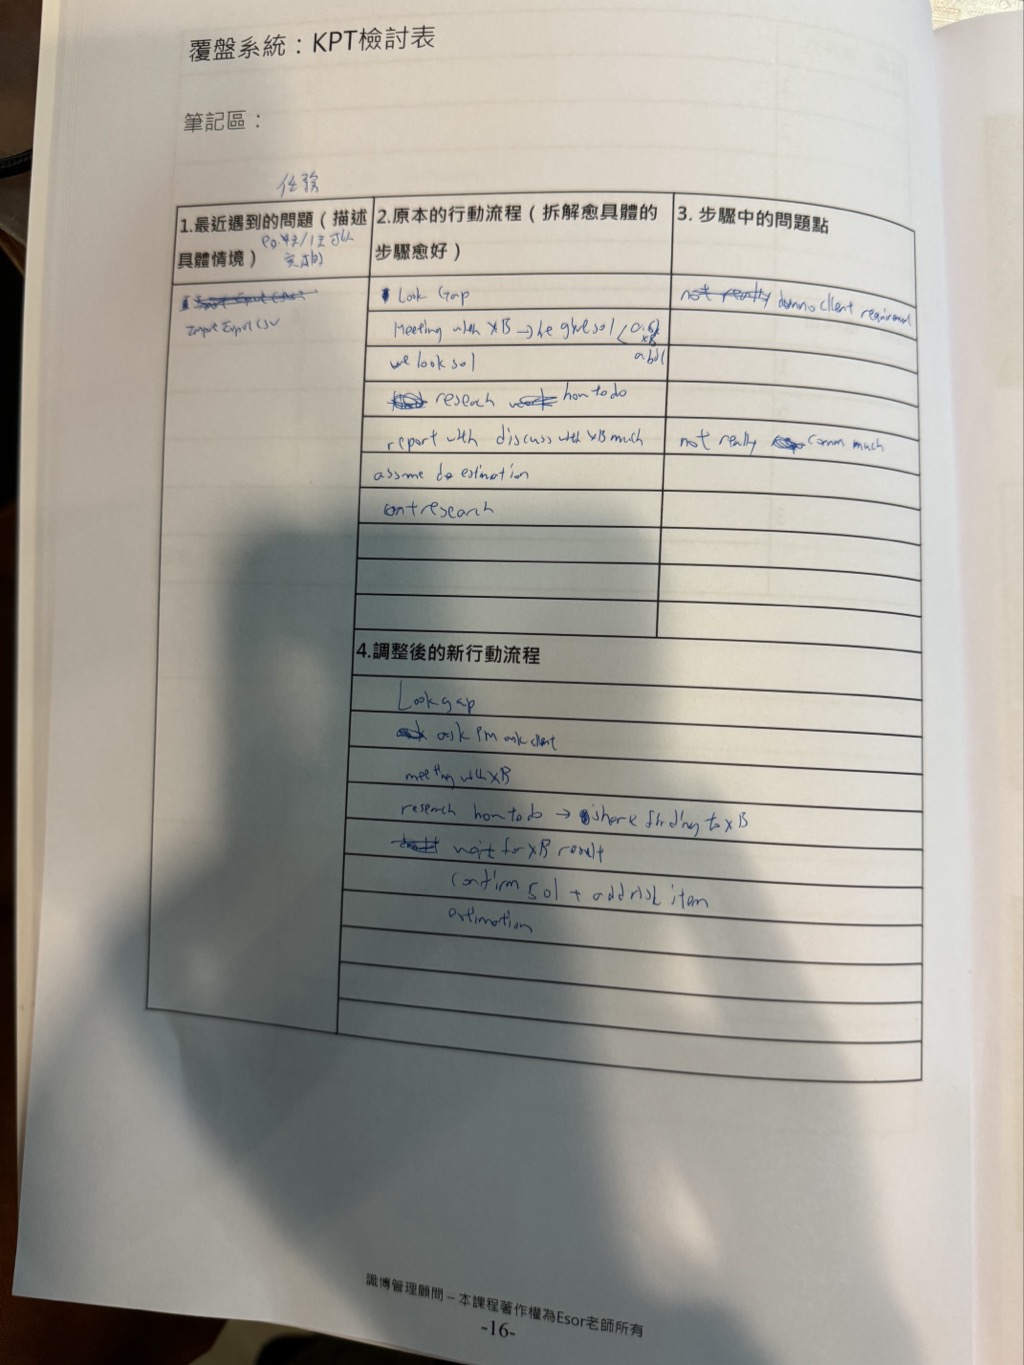 覆盤系統：KPT檢討表
筆記區：
任務
1.最近遇到的問題（描述
具體情境）
2.原本的行動流程（拆解愈具體的
步驟愈好）
3. 步驟中的問題點
Input Export CSV
Look Gap
client requirement
Meeting with XB → he give sol
XB
we look sol
reseach how to do
report with discuss with XB much
not really comm much
assume do estimation
research
4.調整後的新行動流程
Look gap
ask PM ask client
meeting with XB
research how to do → share finding to XB
wait for XB result
confirm sol + add risk item
estimation
識博管理顧問－本課程著作權為Esor老師所有
-16-